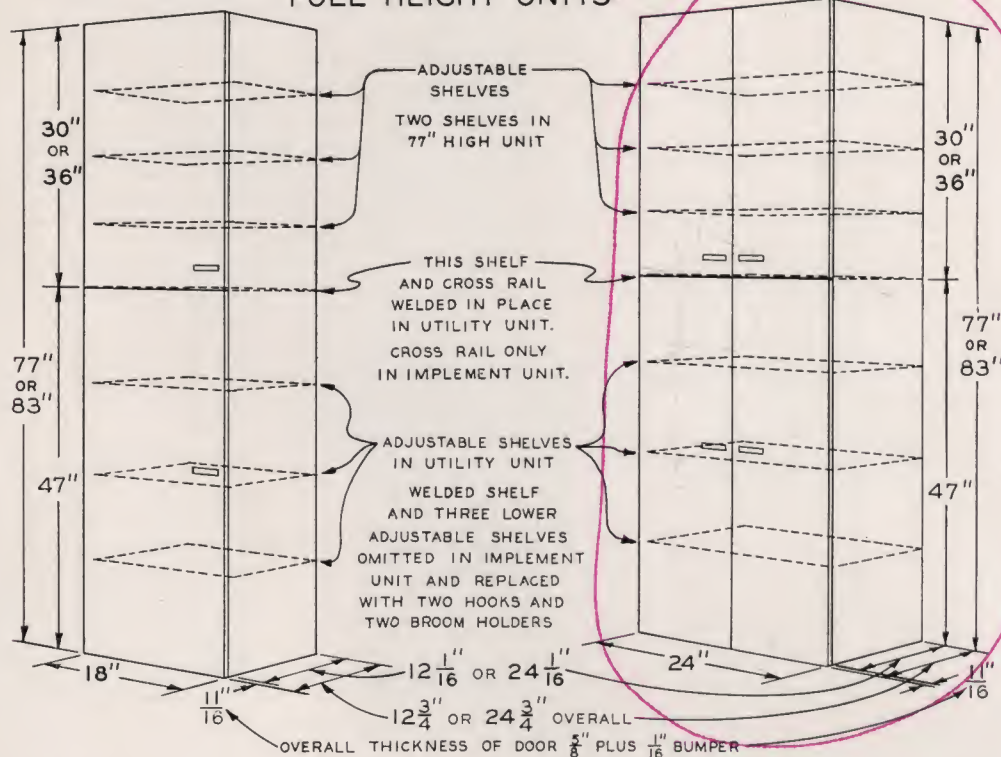 FULL HEIGHT UNITS
30"
OR
36"
77"
OR
83"
47"
18"
11/16"
ADJUSTABLE
SHELVES
TWO SHELVES IN
77" HIGH UNIT
THIS SHELF
AND CROSS RAIL
WELDED IN PLACE
IN UTILITY UNIT.
CROSS RAIL ONLY
IN IMPLEMENT UNIT.
ADJUSTABLE SHELVES
IN UTILITY UNIT
WELDED SHELF
AND THREE LOWER
ADJUSTABLE SHELVES
OMITTED IN IMPLEMENT
UNIT AND REPLACED
WITH TWO HOOKS AND
TWO BROOM HOLDERS
30"
OR
36"
77"
OR
83"
47"
24"
11/16"
12 1/16" OR 24 1/16"
12 3/4" OR 24 3/4" OVERALL
OVERALL THICKNESS OF DOOR 5/8" PLUS 1/16" BUMPER